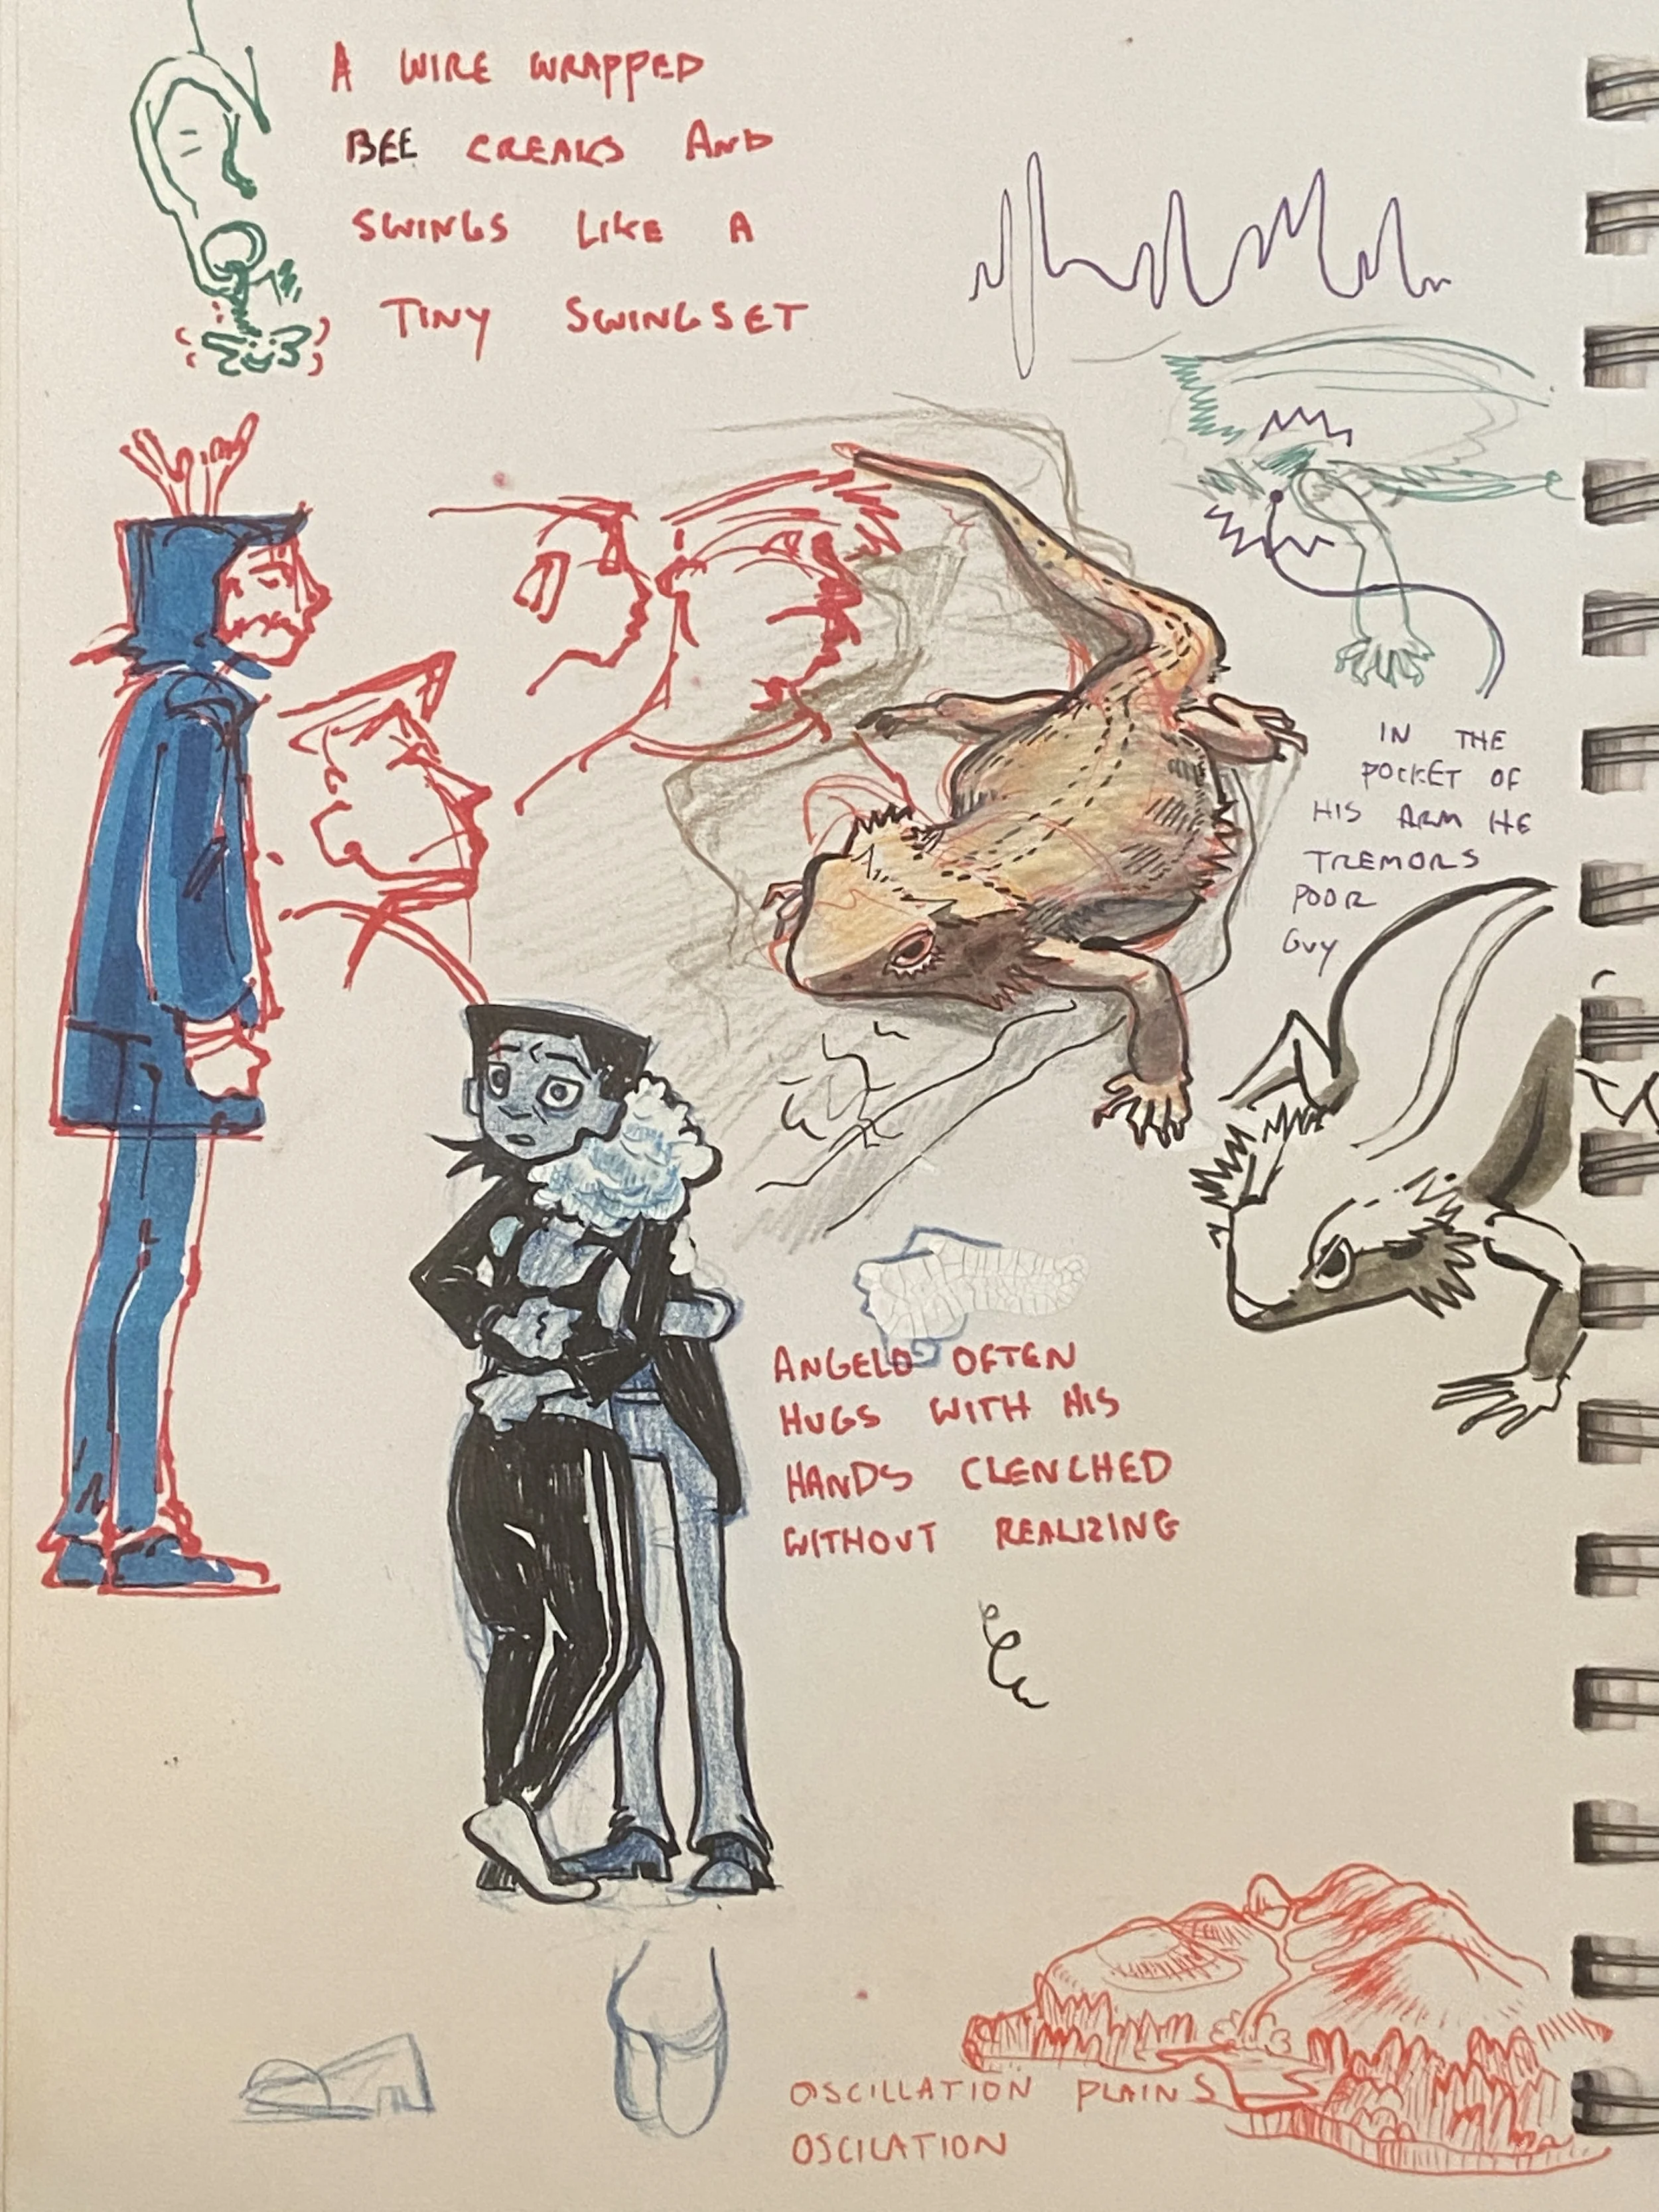 A WIRE WRAPPED
BEE CREAKS AND
SWINGS LIKE A
TINY SWINGSET
IN THE
POCKET OF
HIS ARM HE
TREMORS
POOR
GUY
ANGELO OFTEN
HUGS WITH HIS
HANDS CLENCHED
WITHOUT REALIZING
OSCILLATION PLAINS
OSCILATION